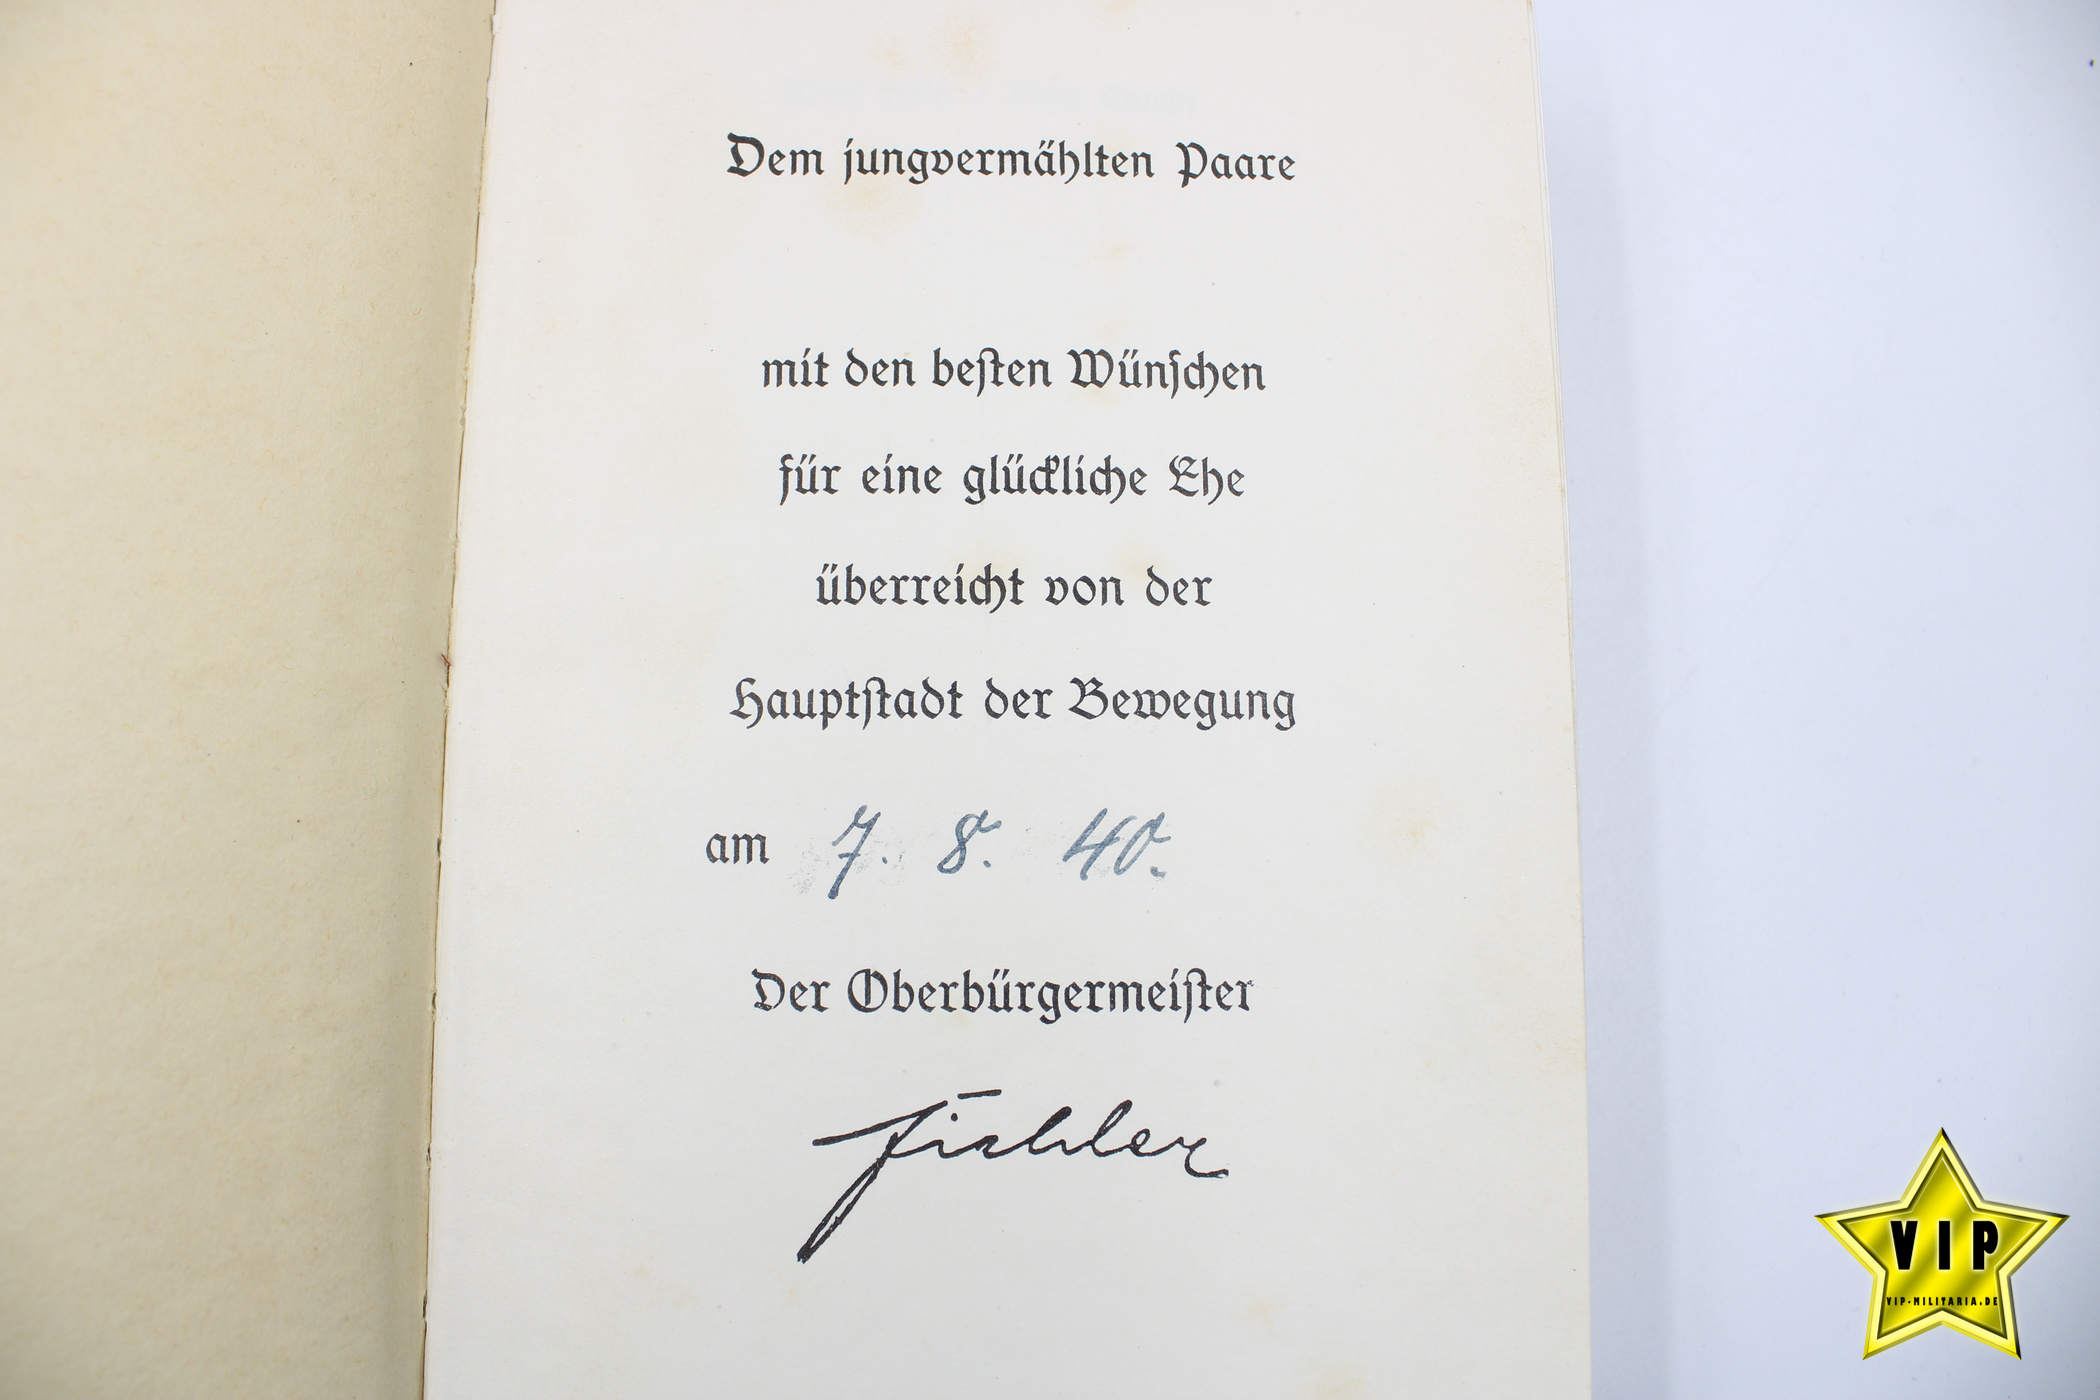 Dem jungvermählten Paare
mit den besten Wünschen
für eine glückliche Ehe
überreicht von der
Hauptstadt der Bewegung
am 7. 8. 40.
Der Oberbürgermeister
Fiehler
VIP
VIP-MILITARIA.DE